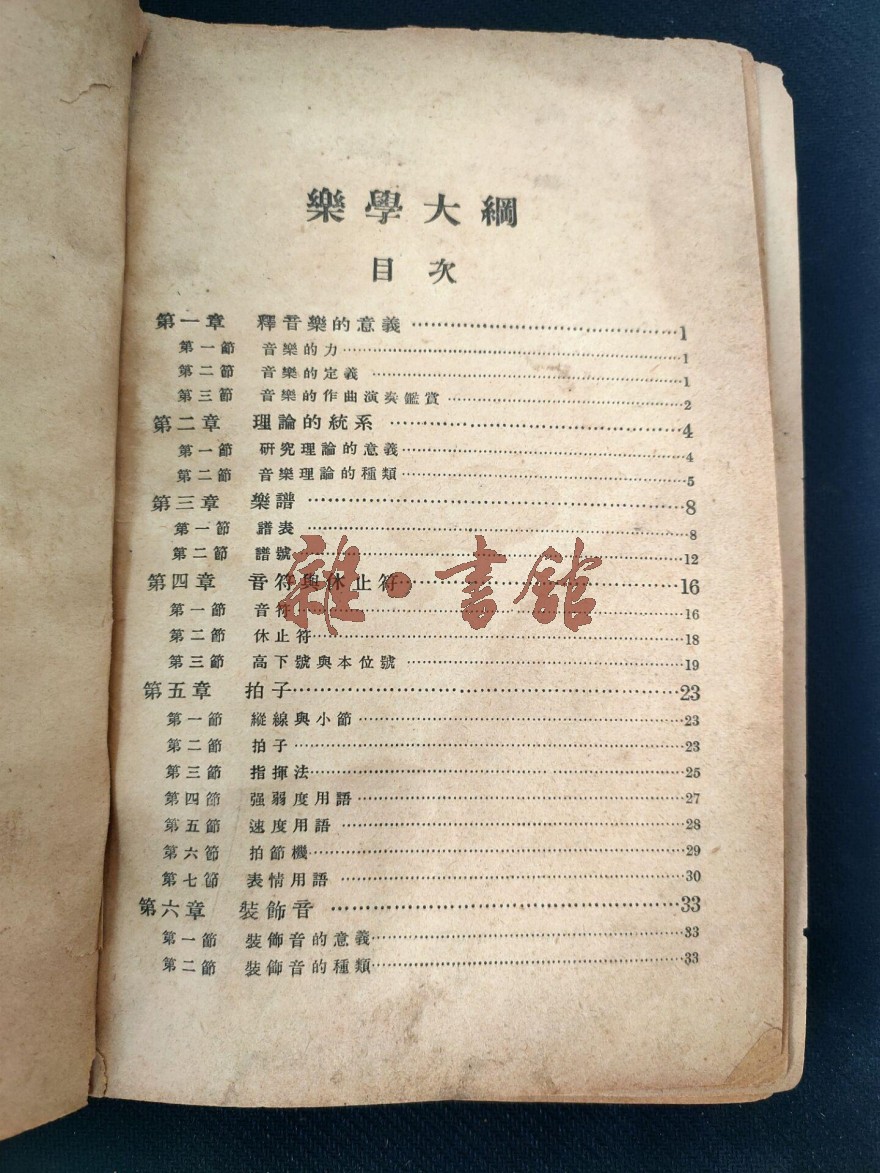 樂學大綱
目次
第一章 釋音樂的意義……………………………1
第一節 音樂的力……………………………1
第二節 音樂的定義……………………………1
第三節 音樂的作曲演奏鑑賞……………………………2
第二章 理論的統系……………………………4
第一節 研究理論的意義……………………………4
第二節 音樂理論的種類……………………………5
第三章 樂譜……………………………8
第一節 譜表……………………………8
第二節 譜號……………………………12
第四章 音符與休止符……………………………16
第一節 音符……………………………16
第二節 休止符……………………………18
第三節 高下號與本位號……………………………19
第五章 拍子……………………………23
第一節 縱線與小節……………………………23
第二節 拍子……………………………23
第三節 指揮法……………………………25
第四節 强弱度用語……………………………27
第五節 速度用語……………………………28
第六節 拍節機……………………………29
第七節 表情用語……………………………30
第六章 裝飾音……………………………33
第一節 裝飾音的意義……………………………33
第二節 裝飾音的種類……………………………33
雜·書館